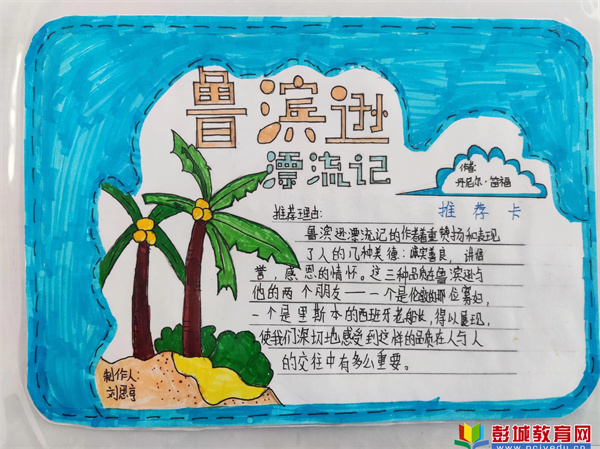 鲁滨逊
漂流记
作者:
丹尼尔·笛福
推荐卡
推荐理由:
鲁滨逊漂流记的作者着重赞扬和表现
了人的几种美德:诚实善良,讲信
誉,感恩的情怀。这三种品质在鲁滨逊与
他的两个朋友——一个是伦敦的那位寡妇,
一个是里斯本的西班牙老船长,得以展现,
使我们深切地感受到这样的品质在人与人
的交往中有多么重要。
制作人:
刘恩亨
彭城教育网